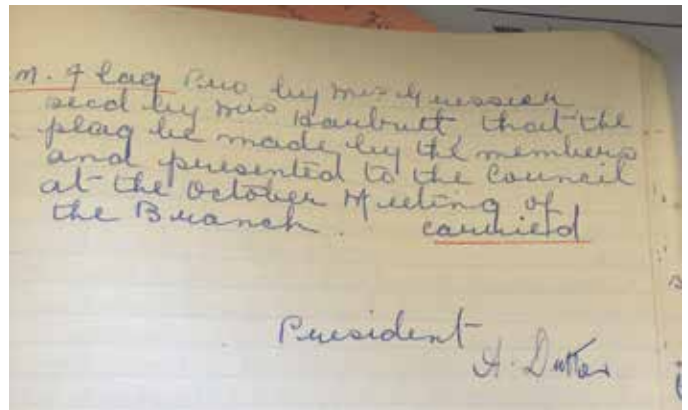 M. Flag Pro. by Mrs
secd by Mrs Harbutt, that the
flag be made by the members
and presented to the Council
at the October Meeting of
the Branch. carried
President
A. Dutton